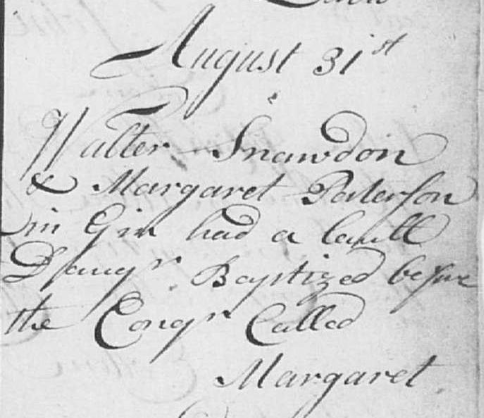 August 31st
Walter Snawdon
& Margaret Paterson
in Gin had a lawll
Daugr Baptized before
the Congr Called
Margaret